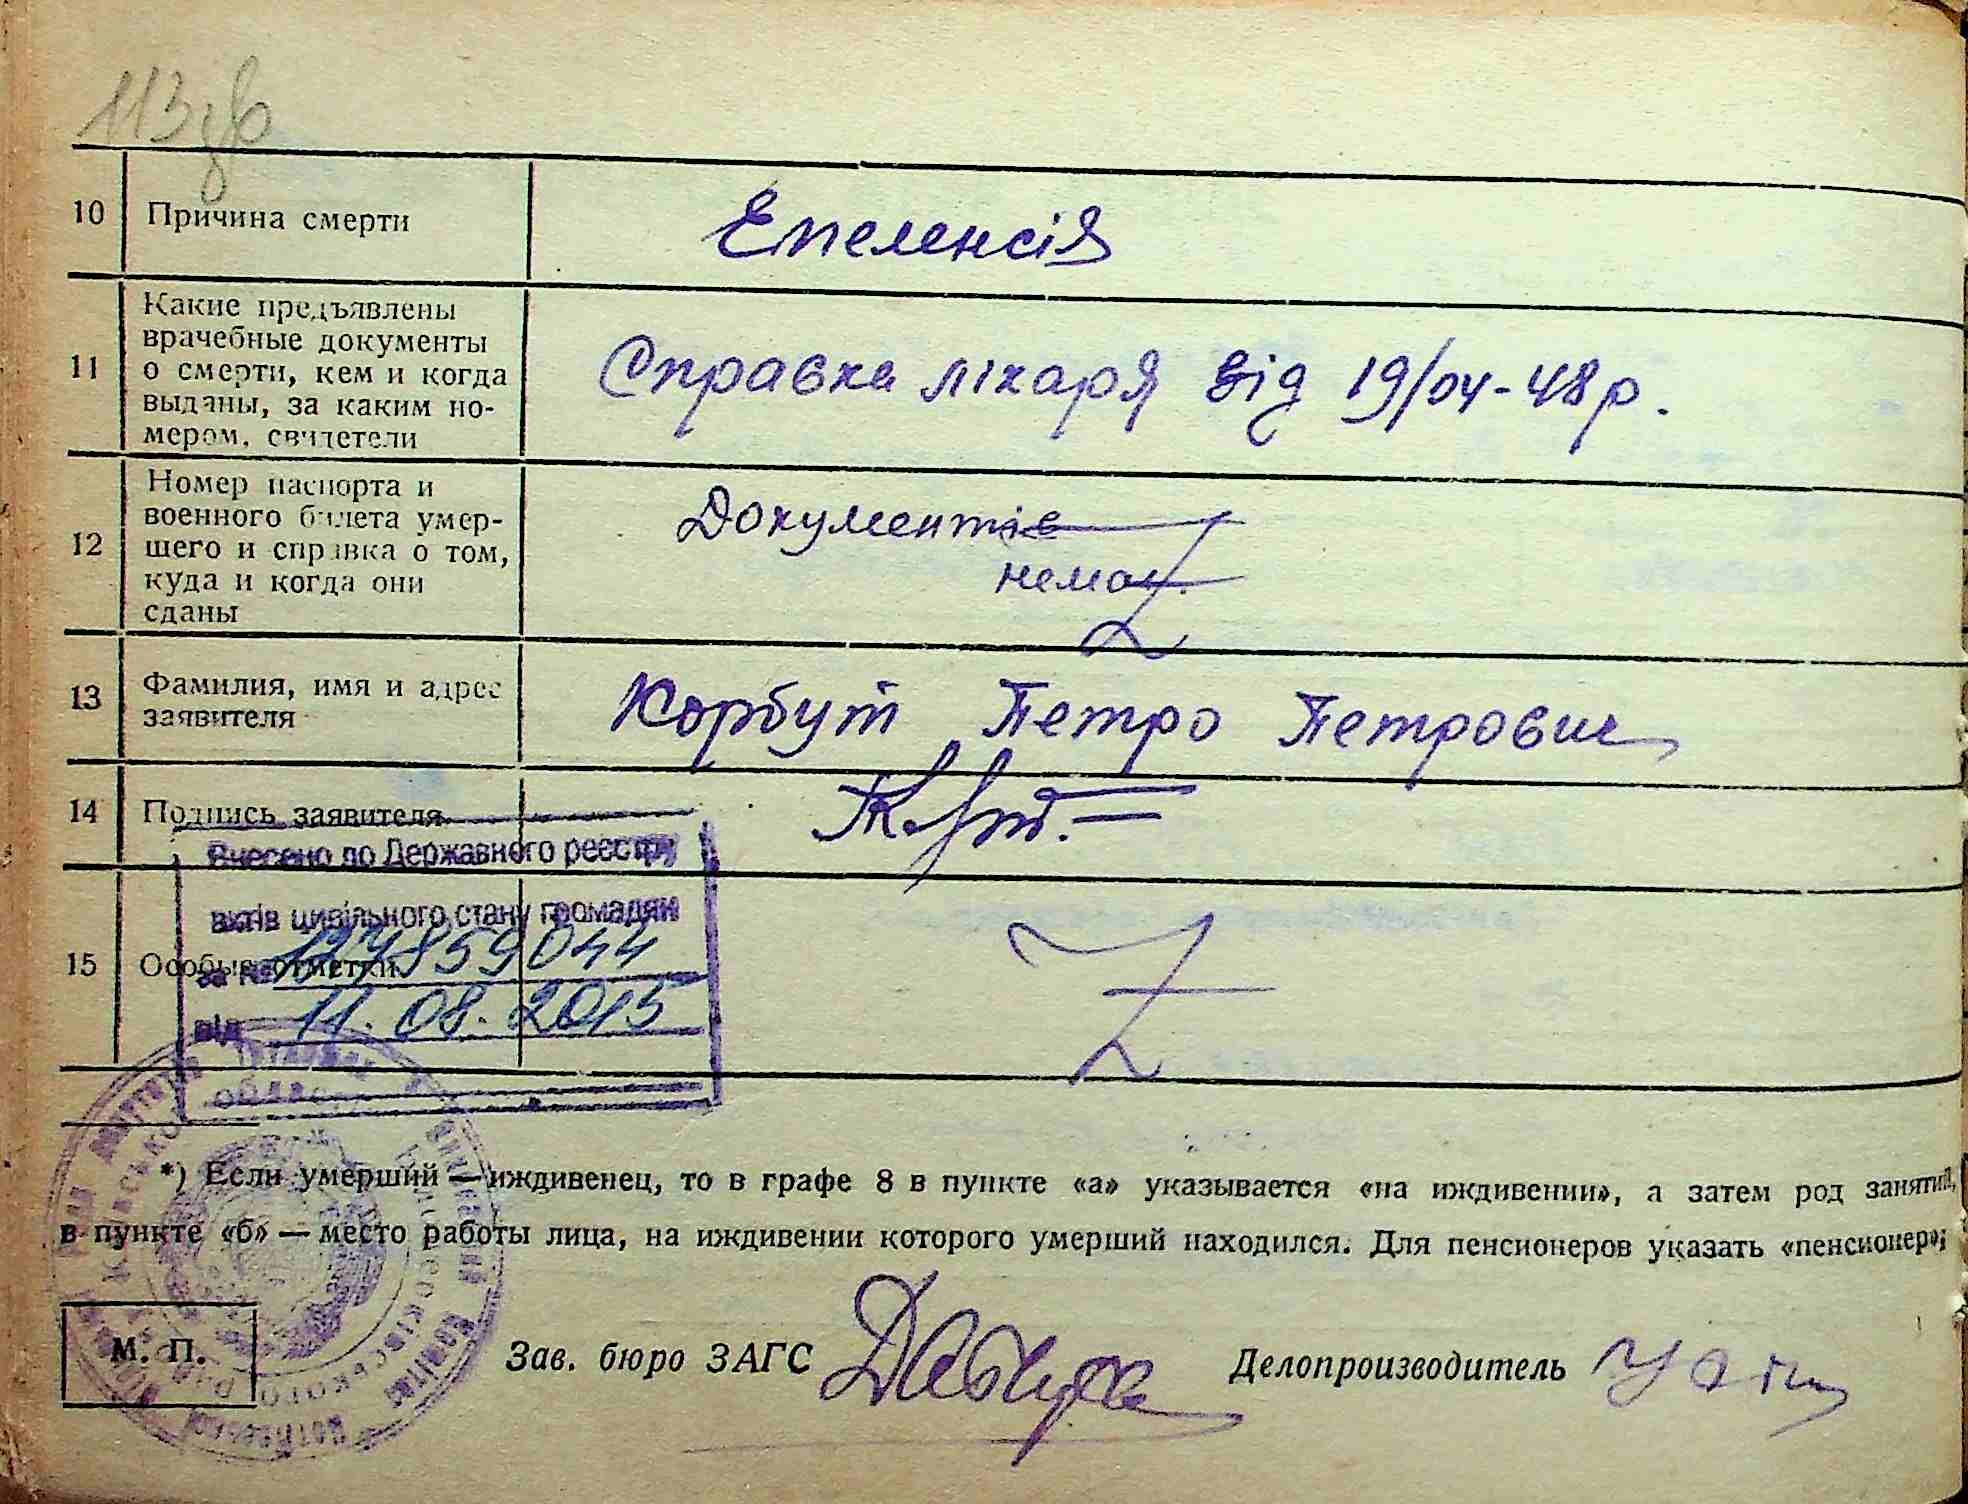 113зв
10 Причина смерти Епеленсія
11 Какие предъявлены
врачебные документы
о смерти, кем и когда
выданы, за каким но-
мером, свидетели
Справка лікаря від 19/04-48р.
12 Номер паспорта и
военного билета умер-
шего и справка о том,
куда и когда они
сданы
Документів
нема
13 Фамилия, имя и адрес
заявителя
Корбут Петро Петрович
14 Подпись заявителя
Внесено до Державного реєстру
актів цивільного стану громадян
15 Особые отметки
за №
від 11.08.2015
*) Если умерший — иждивенец, то в графе 8 в пункте «а» указывается «на иждивении», а затем род занятий,
в пункте «б» — место работы лица, на иждивении которого умерший находился. Для пенсионеров указать «пенсионер»;
М. П. Зав. бюро ЗАГС Делопроизводитель